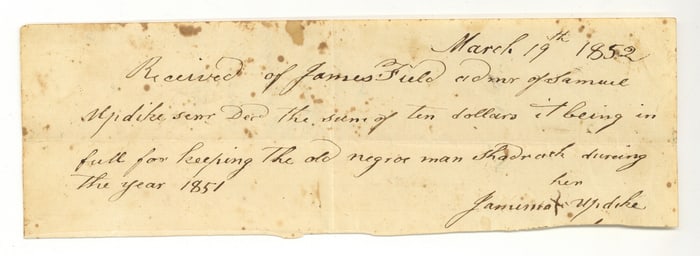 March 19th 1852
Received of James Field admr of Samuel
Updike senr Decd the sum of ten dollars it being in
full for keeping the old negroe man Shadrach during
the year 1851
her
Jamima X Updike